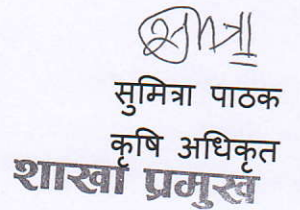 सुमित्रा पाठक
कृषि अधिकृत
शाखा प्रमुख